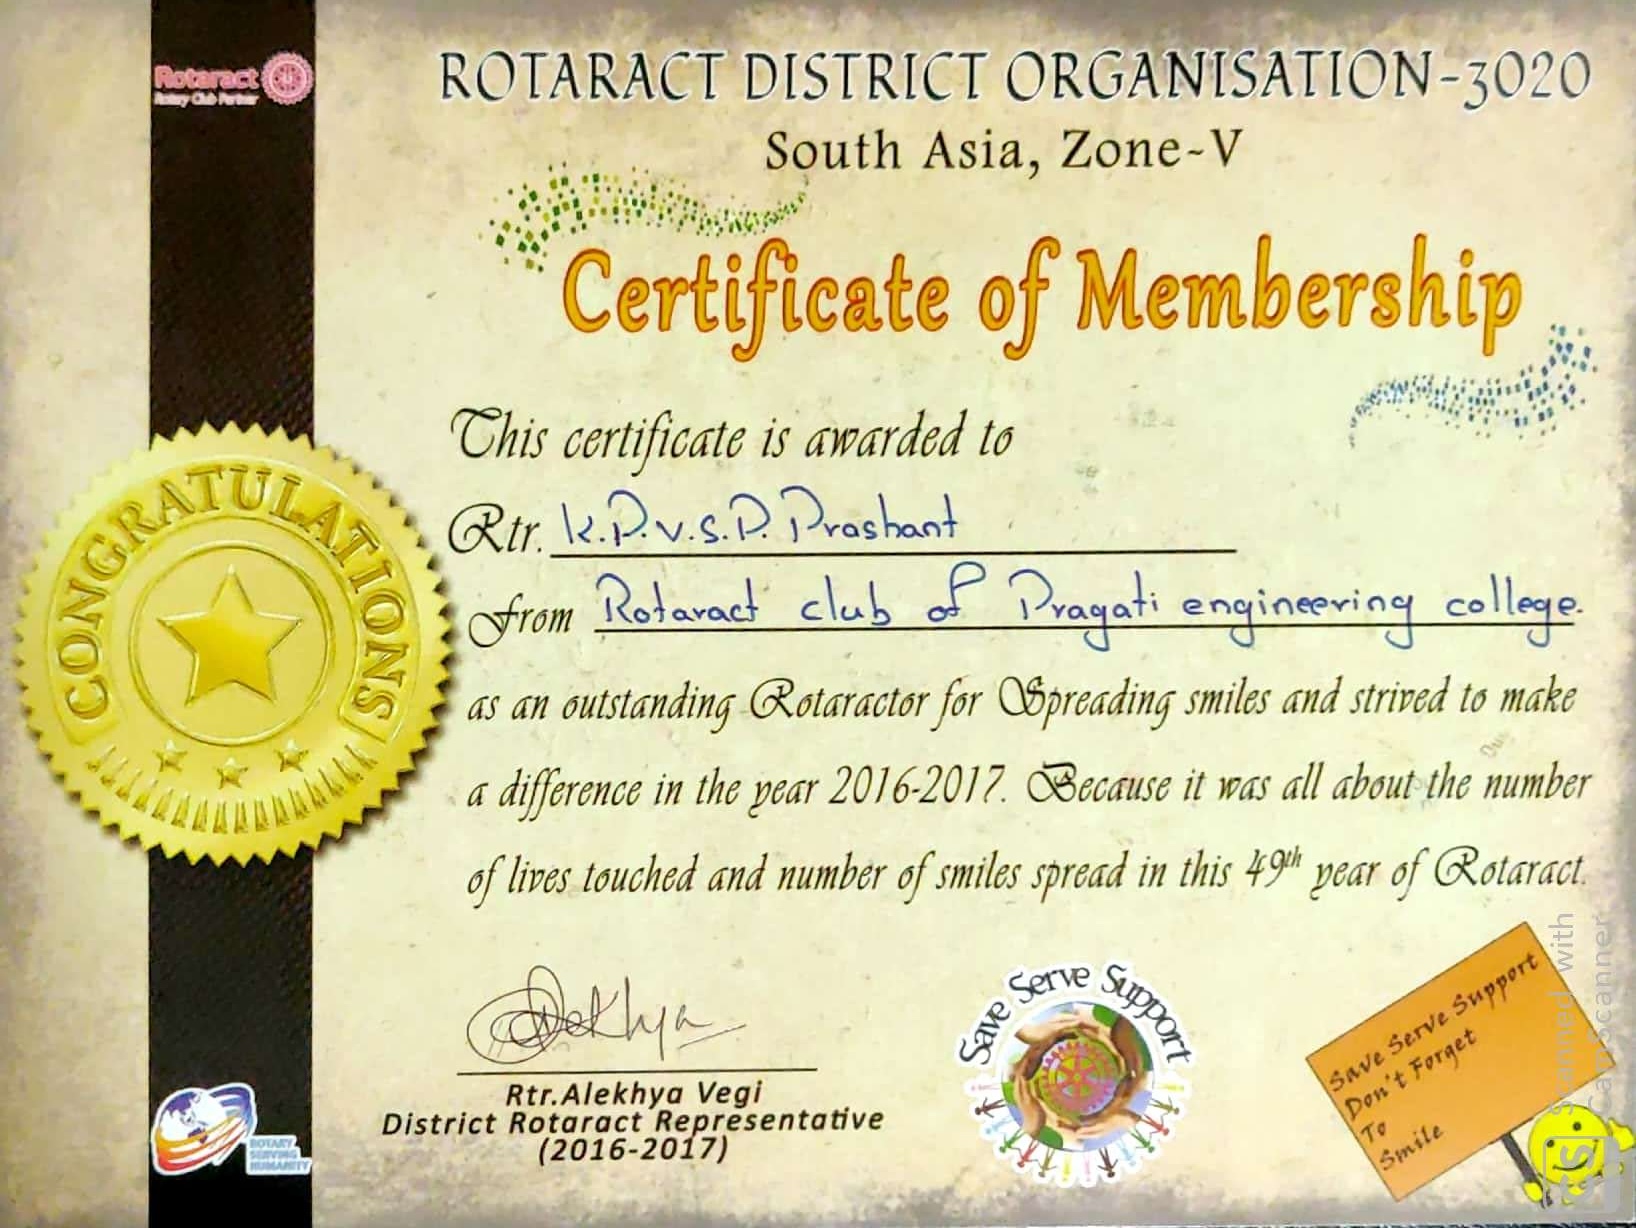 Rotaract
Rotary Club Partner
ROTARACT DISTRICT ORGANISATION-3020
South Asia, Zone-V
Certificate of Membership
This certificate is awarded to
Rtr. K.P.V.S.P. Prashant
From Rotaract club of Pragati engineering college.
as an outstanding Rotaractor for Spreading smiles and strived to make
a difference in the year 2016-2017. Because it was all about the number
of lives touched and number of smiles spread in this 49th year of Rotaract.
CONGRATULATIONS
Alekhya
Rtr.Alekhya Vegi
District Rotaract Representative
(2016-2017)
Save Serve Support
Save Serve Support
Don't Forget
To
Smile
ROTARY
SERVING
HUMANITY
Scanned with
CamScanner
CS